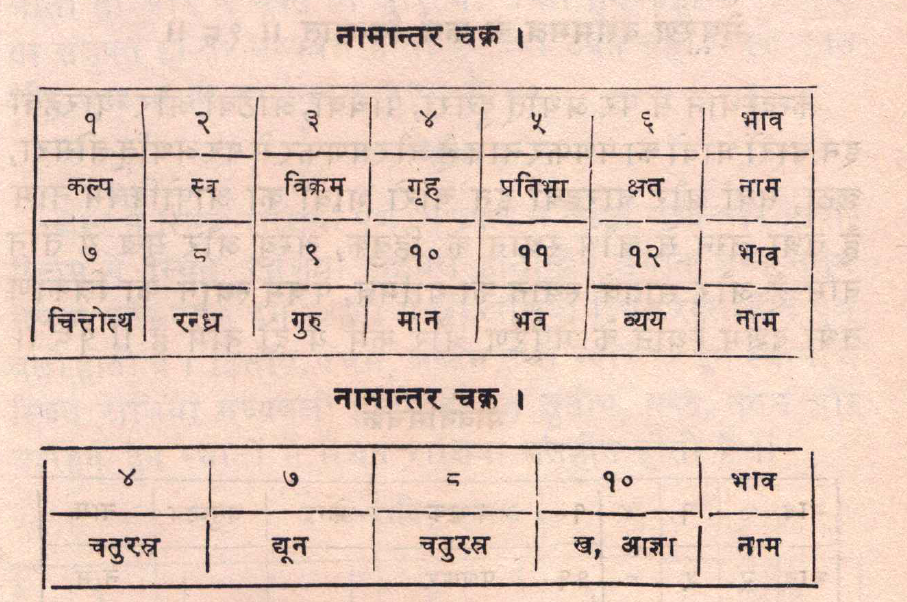 नामान्तर चक्र ।
१ २ ३ ४ ५ ६ भाव
कल्प स्व विक्रम गृह प्रतिभा क्षत नाम
७ ८ ९ १० ११ १२ भाव
चित्तोत्थ रन्ध्र गुरु मान भव व्यय नाम
नामान्तर चक्र ।
४ ७ ८ १० भाव
चतुरस्र द्यून चतुरस्र ख, आज्ञा नाम